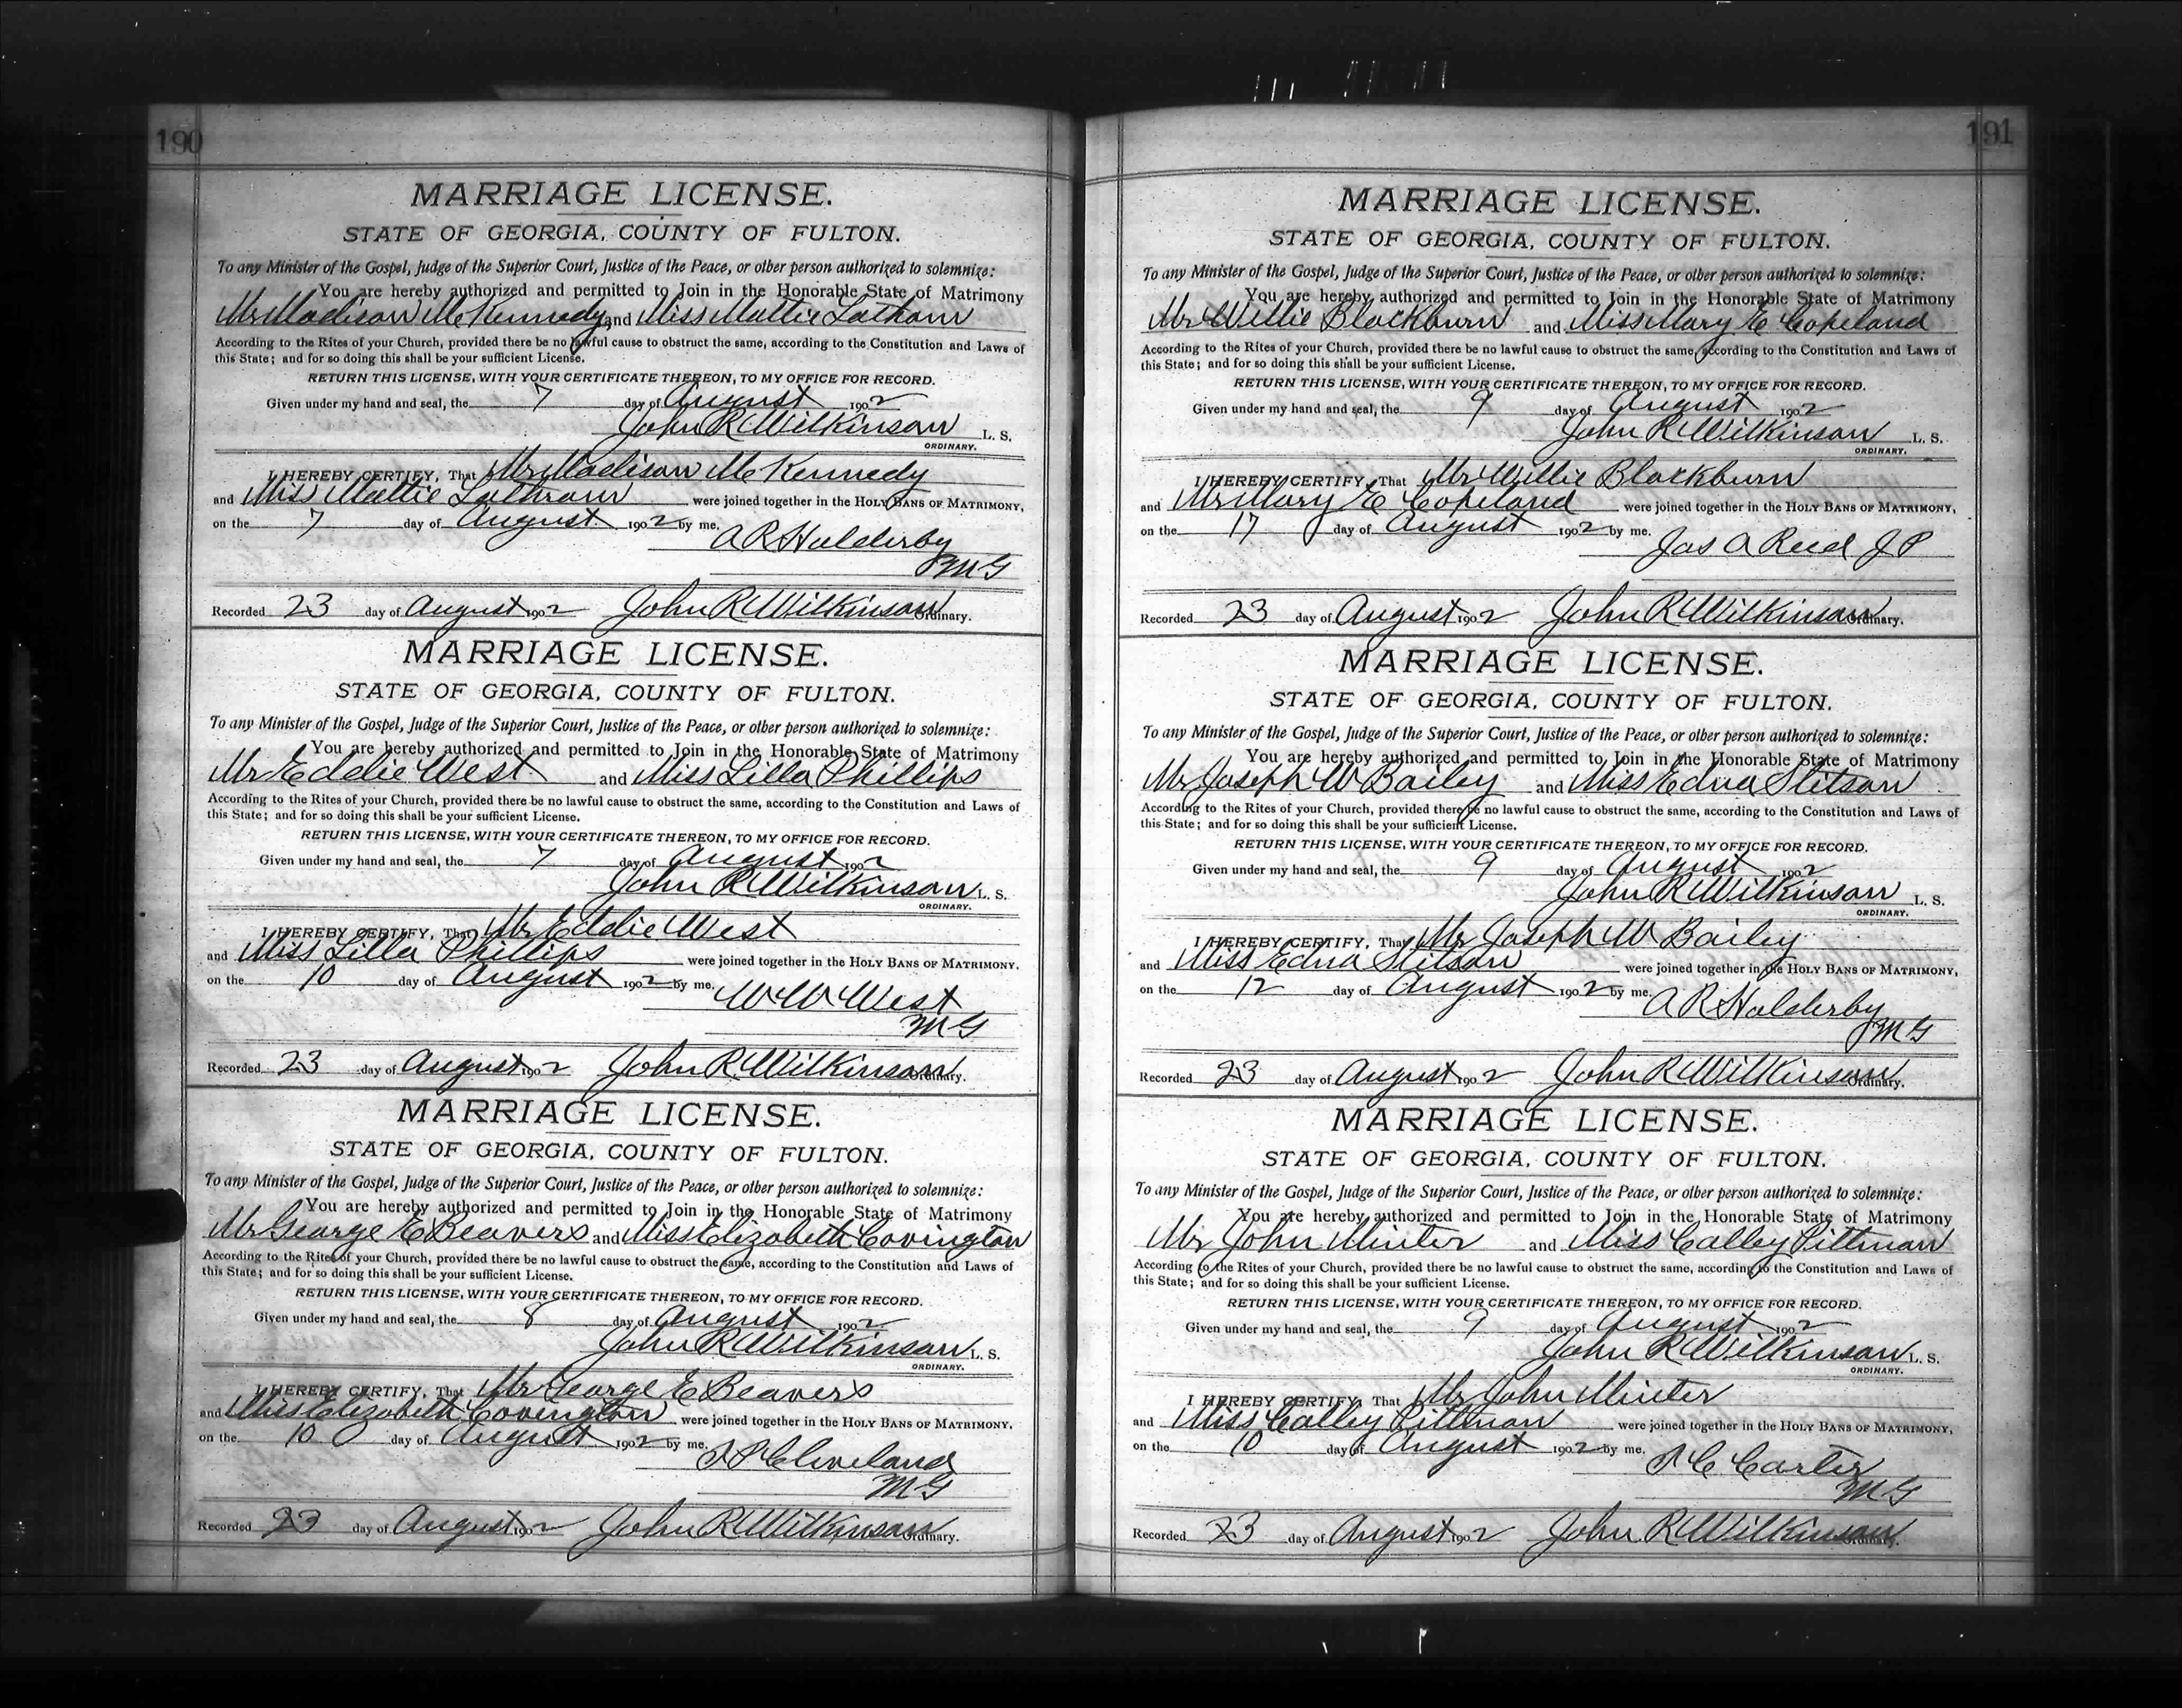 190
MARRIAGE LICENSE.
STATE OF GEORGIA, COUNTY OF FULTON.
To any Minister of the Gospel, Judge of the Superior Court, Justice of the Peace, or other person authorized to solemnize:
You are hereby authorized and permitted to Join in the Honorable State of Matrimony
Mr Madison McKennedy and Miss Mattie Latham
According to the Rites of your Church, provided there be no lawful cause to obstruct the same, according to the Constitution and Laws of
this State; and for so doing this shall be your sufficient License.
RETURN THIS LICENSE, WITH YOUR CERTIFICATE THEREON, TO MY OFFICE FOR RECORD.
Given under my hand and seal, the 7 day of August 1902
John R Wilkinson L. S.
ORDINARY.
I HEREBY CERTIFY, That Mr Madison McKennedy
and Miss Mattie Lathram were joined together in the HOLY BANS OF MATRIMONY,
on the 7 day of August 1902 by me.
A R Holderby
MG
Recorded 23 day of August 1902 John R Wilkinson Ordinary.
MARRIAGE LICENSE.
STATE OF GEORGIA, COUNTY OF FULTON.
To any Minister of the Gospel, Judge of the Superior Court, Justice of the Peace, or other person authorized to solemnize:
You are hereby authorized and permitted to Join in the Honorable State of Matrimony
Mr Eddie West and Miss Lilla Phillips
According to the Rites of your Church, provided there be no lawful cause to obstruct the same, according to the Constitution and Laws of
this State; and for so doing this shall be your sufficient License.
RETURN THIS LICENSE, WITH YOUR CERTIFICATE THEREON, TO MY OFFICE FOR RECORD.
Given under my hand and seal, the 7 day of August 1902
John R Wilkinson L. S.
ORDINARY.
I HEREBY CERTIFY, That Mr Eddie West
and Miss Lilla Phillips were joined together in the HOLY BANS OF MATRIMONY,
on the 10 day of August 1902 by me.
W W West
MG
Recorded 23 day of August 1902 John R Wilkinson Ordinary.
MARRIAGE LICENSE.
STATE OF GEORGIA, COUNTY OF FULTON.
To any Minister of the Gospel, Judge of the Superior Court, Justice of the Peace, or other person authorized to solemnize:
You are hereby authorized and permitted to Join in the Honorable State of Matrimony
Mr George E Beavers and Miss Elizabeth Covington
According to the Rites of your Church, provided there be no lawful cause to obstruct the same, according to the Constitution and Laws of
this State; and for so doing this shall be your sufficient License.
RETURN THIS LICENSE, WITH YOUR CERTIFICATE THEREON, TO MY OFFICE FOR RECORD.
Given under my hand and seal, the 8 day of August 1902
John R Wilkinson L. S.
ORDINARY.
I HEREBY CERTIFY, That Mr George E Beavers
and Miss Elizabeth Covington were joined together in the HOLY BANS OF MATRIMONY,
on the 10 day of August 1902 by me.
J P Cleveland
MG
Recorded 23 day of August 1902 John R Wilkinson Ordinary.
191
MARRIAGE LICENSE.
STATE OF GEORGIA, COUNTY OF FULTON.
To any Minister of the Gospel, Judge of the Superior Court, Justice of the Peace, or other person authorized to solemnize:
You are hereby authorized and permitted to Join in the Honorable State of Matrimony
Mr Willie Blackburn and Miss Mary E Copeland
According to the Rites of your Church, provided there be no lawful cause to obstruct the same, according to the Constitution and Laws of
this State; and for so doing this shall be your sufficient License.
RETURN THIS LICENSE, WITH YOUR CERTIFICATE THEREON, TO MY OFFICE FOR RECORD.
Given under my hand and seal, the 9 day of August 1902
John R Wilkinson L. S.
ORDINARY.
I HEREBY CERTIFY, That Mr Willie Blackburn
and Mr Mary E Copeland were joined together in the HOLY BANS OF MATRIMONY,
on the 17 day of August 1902 by me.
Jas A Reed J P
Recorded 23 day of August 1902 John R Wilkinson Ordinary.
MARRIAGE LICENSE.
STATE OF GEORGIA, COUNTY OF FULTON.
To any Minister of the Gospel, Judge of the Superior Court, Justice of the Peace, or other person authorized to solemnize:
You are hereby authorized and permitted to Join in the Honorable State of Matrimony
Mr Joseph W Bailey and Miss Edna Stitson
According to the Rites of your Church, provided there be no lawful cause to obstruct the same, according to the Constitution and Laws of
this State; and for so doing this shall be your sufficient License.
RETURN THIS LICENSE, WITH YOUR CERTIFICATE THEREON, TO MY OFFICE FOR RECORD.
Given under my hand and seal, the 9 day of August 1902
John R Wilkinson L. S.
ORDINARY.
I HEREBY CERTIFY, That Mr Joseph W Bailey
and Miss Edna Stitson were joined together in the HOLY BANS OF MATRIMONY,
on the 12 day of August 1902 by me.
A R Holderby
MG
Recorded 23 day of August 1902 John R Wilkinson Ordinary.
MARRIAGE LICENSE.
STATE OF GEORGIA, COUNTY OF FULTON.
To any Minister of the Gospel, Judge of the Superior Court, Justice of the Peace, or other person authorized to solemnize:
You are hereby authorized and permitted to Join in the Honorable State of Matrimony
Mr John Minter and Miss Calley Pittman
According to the Rites of your Church, provided there be no lawful cause to obstruct the same, according to the Constitution and Laws of
this State; and for so doing this shall be your sufficient License.
RETURN THIS LICENSE, WITH YOUR CERTIFICATE THEREON, TO MY OFFICE FOR RECORD.
Given under my hand and seal, the 9 day of August 1902
John R Wilkinson L. S.
ORDINARY.
I HEREBY CERTIFY, That Mr John Minter
and Miss Calley Pittman were joined together in the HOLY BANS OF MATRIMONY,
on the 10 day of August 1902 by me.
J C Carter
MG
Recorded 23 day of August 1902 John R Wilkinson Ordinary.